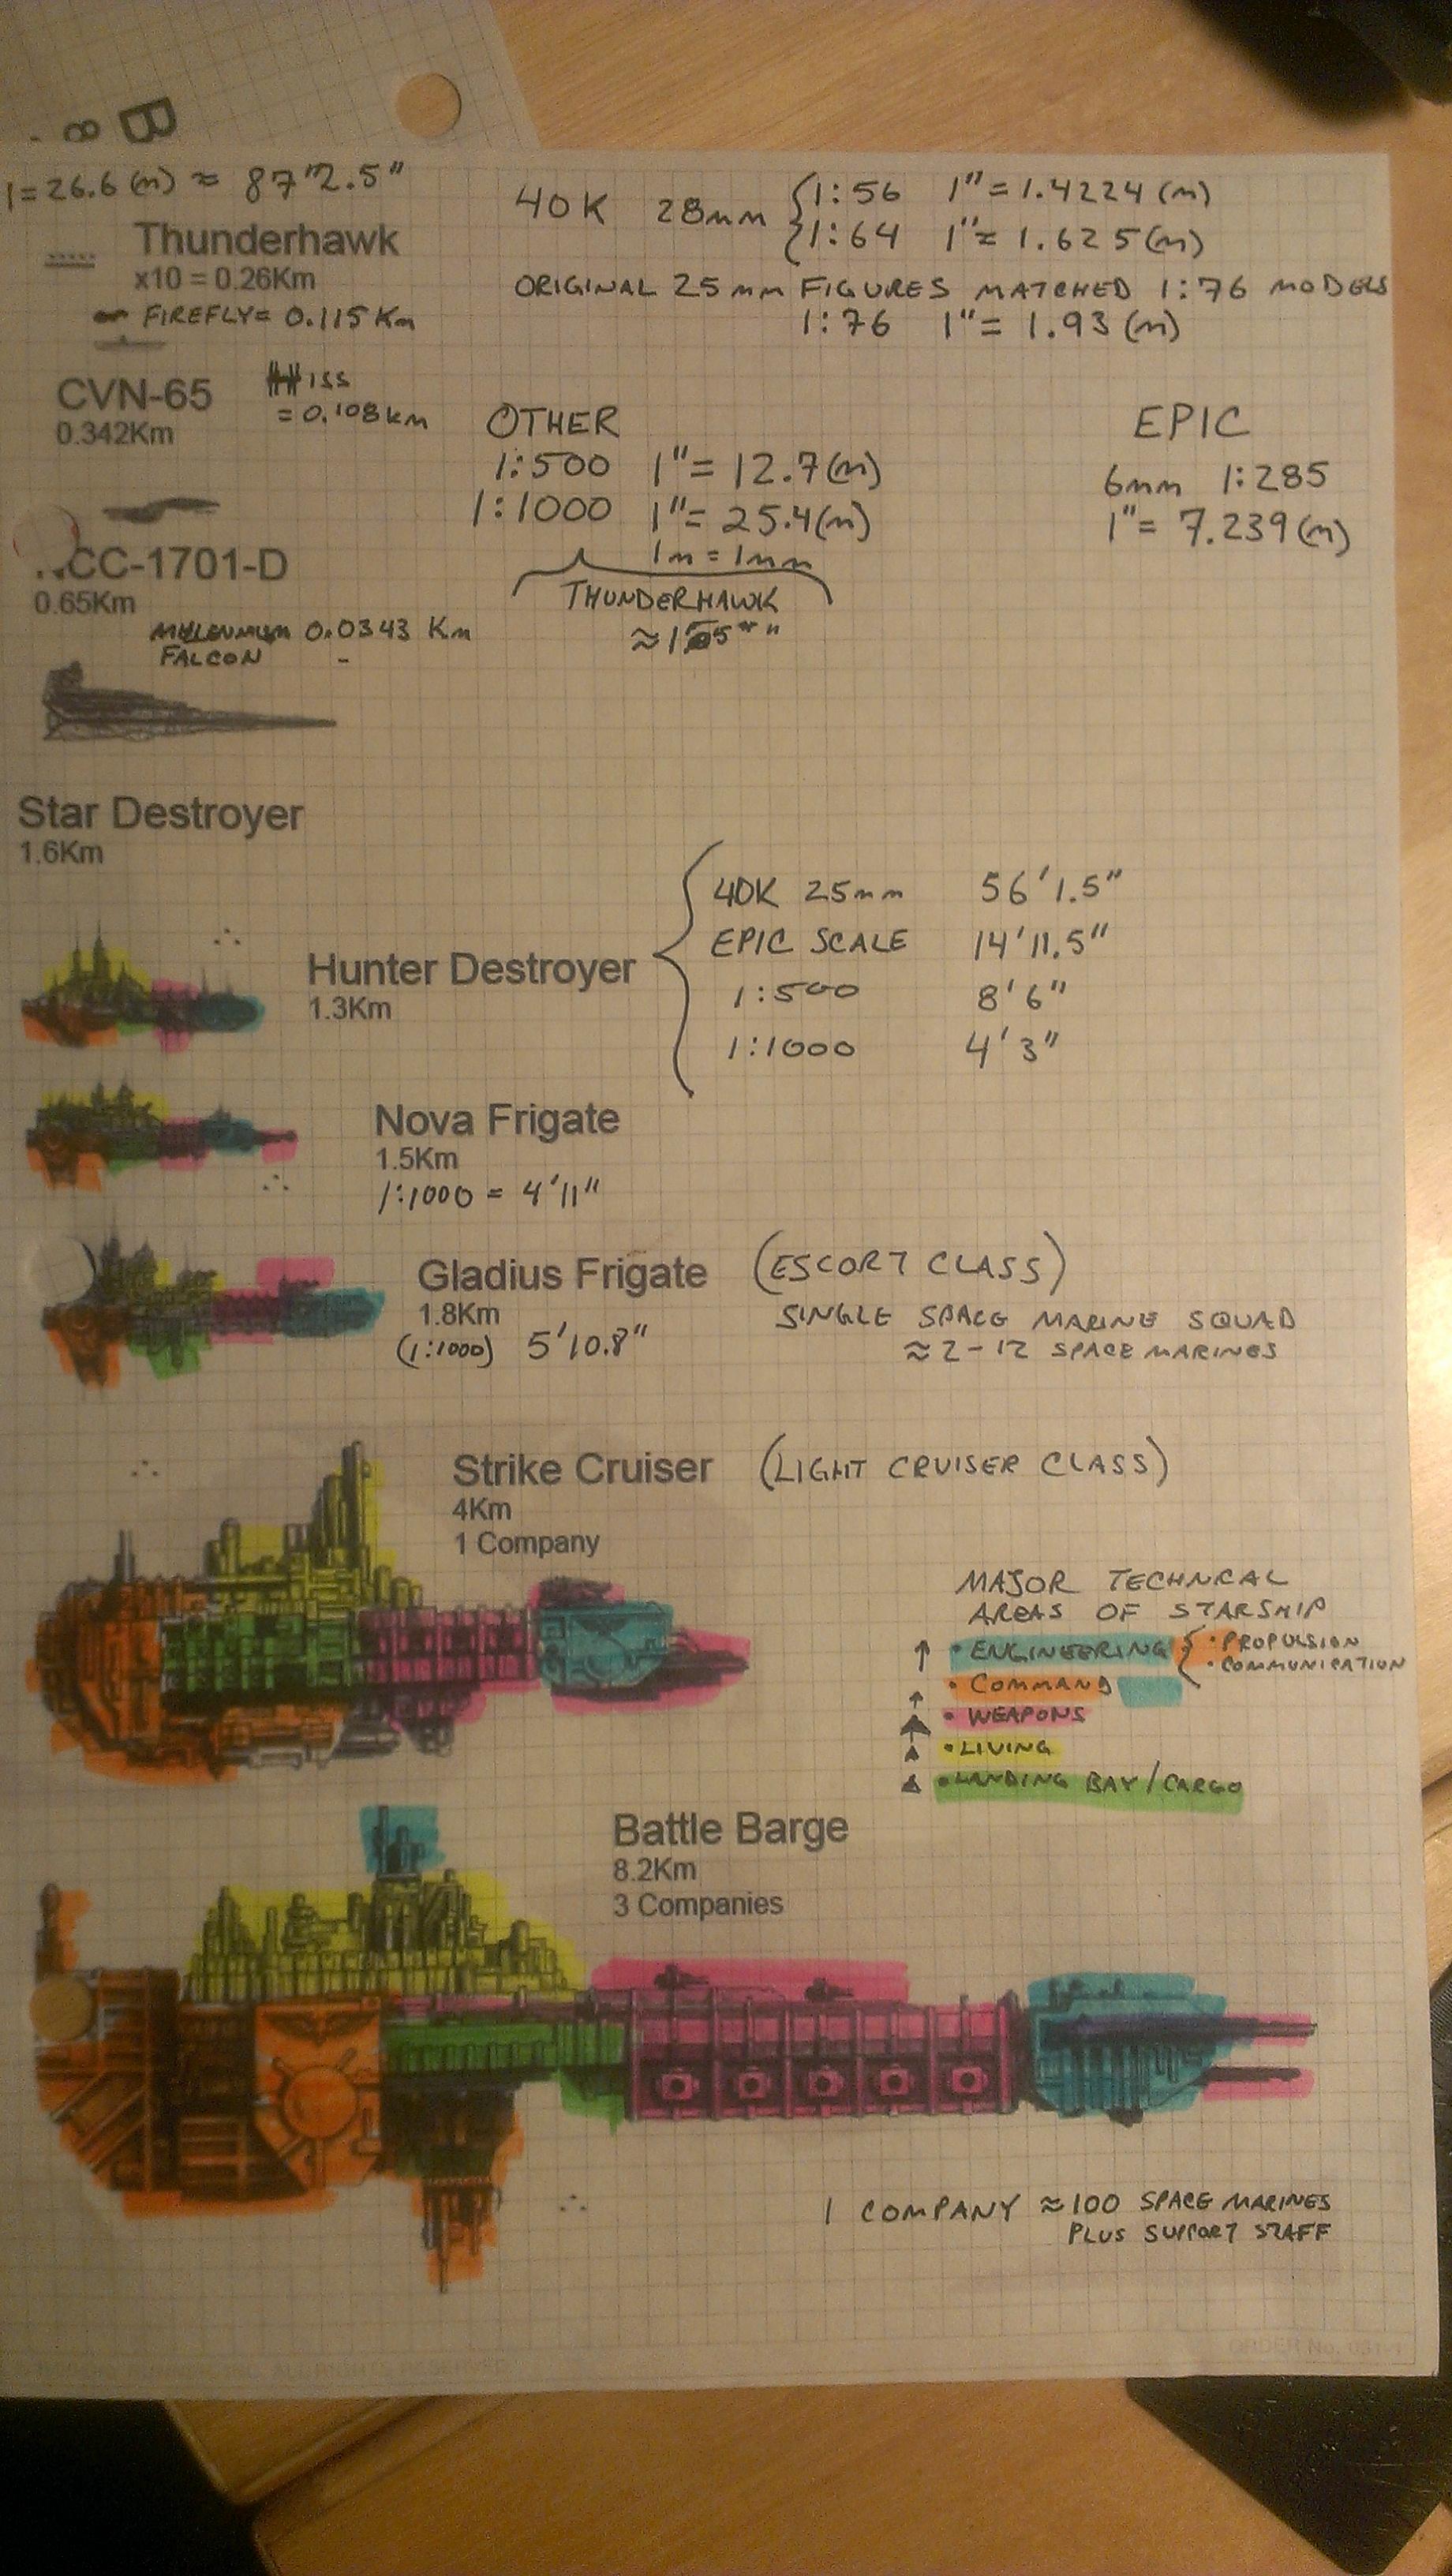 8 B
l=26.6(m) ≈ 87'2.5"
Thunderhawk
x10 = 0.26Km
FIREFLY= 0.115 Km
40K 28mm { 1:56 1"=1.4224(m)
1:64 1"≈ 1.625(m)
ORIGINAL 25mm FIGURES MATCHED 1:76 MODELS
1:76 1"= 1.93(m)
CVN-65
0.342Km
ISS
= 0.108km
OTHER
1:500 1"= 12.7(m)
1:1000 1"= 25.4(m)
1m = 1mm
THUNDERHAWK
EPIC
6mm 1:285
1"= 7.239(m)
NCC-1701-D
0.65Km
MILLENNIUM 0.0343 Km
FALCON
Star Destroyer
1.6Km
Hunter Destroyer
1.3Km
40K 25mm 56'1.5"
EPIC SCALE 14'11.5"
1:500 8'6"
1:1000 4'3"
Nova Frigate
1.5Km
1:1000 = 4'11"
Gladius Frigate (ESCORT CLASS)
1.8Km
(1:1000) 5'10.8"
SINGLE SPACE MARINE SQUAD
≈ 2-12 SPACE MARINES
Strike Cruiser (LIGHT CRUISER CLASS)
4Km
1 Company
MAJOR TECHNICAL
AREAS OF STARSHIP
• ENGINEERING { • PROPULSION
• COMMUNICATION
• COMMAND
• WEAPONS
• LIVING
• LANDING BAY/CARGO
Battle Barge
8.2Km
3 Companies
1 COMPANY ≈100 SPACE MARINES
PLUS SUPPORT STAFF